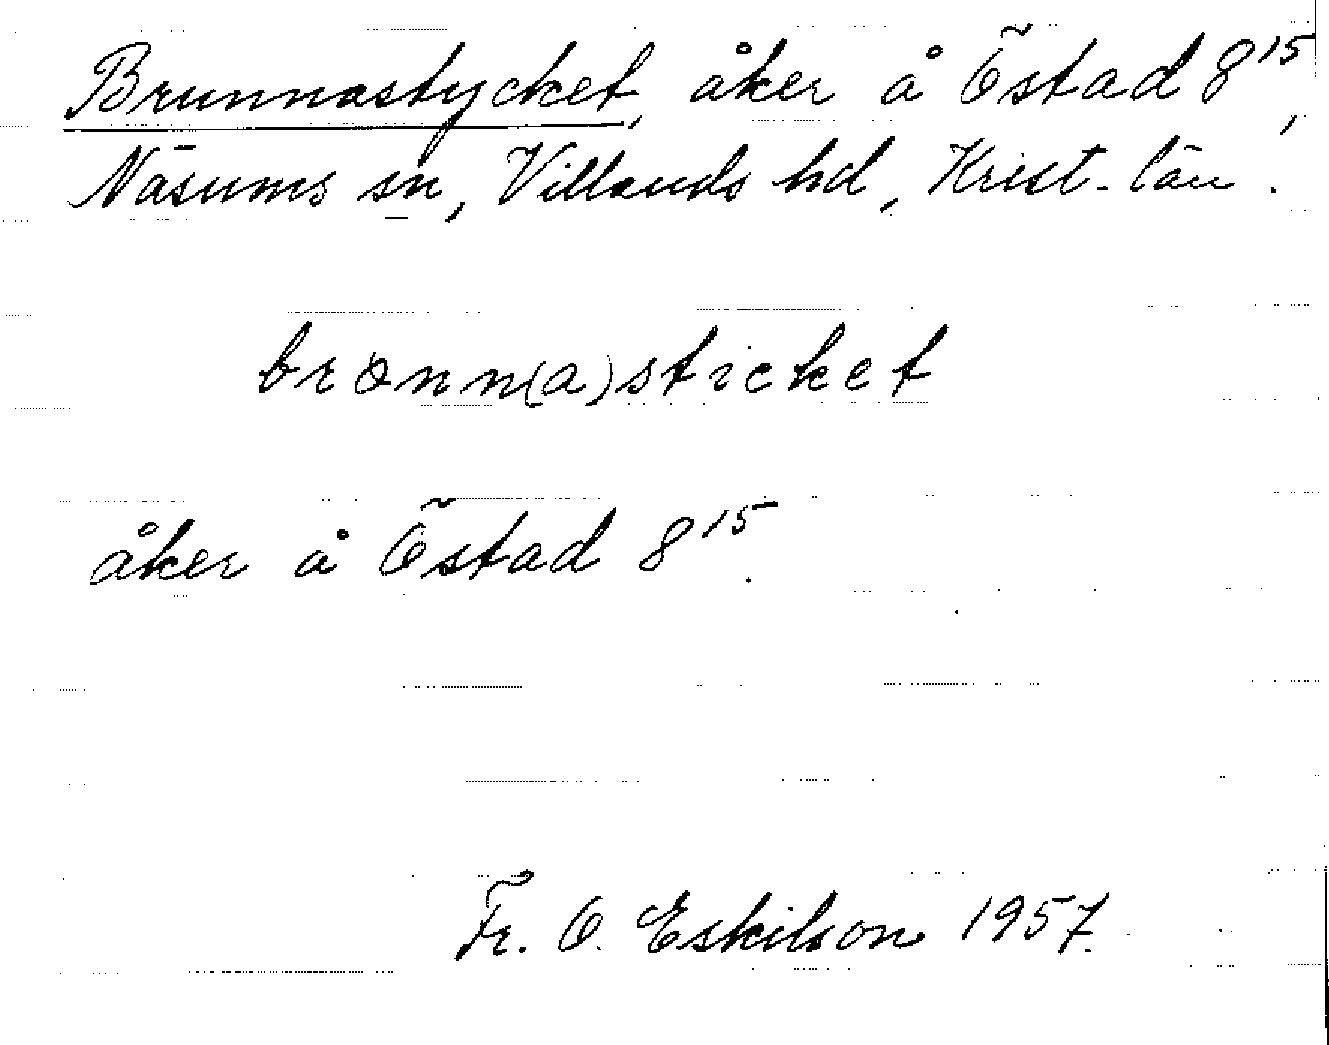 Brunnastycket, åker å Östad 8¹⁵,
Näsums sn, Villands hd, Krist. län.
brönn(a)sticket
åker å Östad 8¹⁵.
Fr. O. Eskilson 1957.